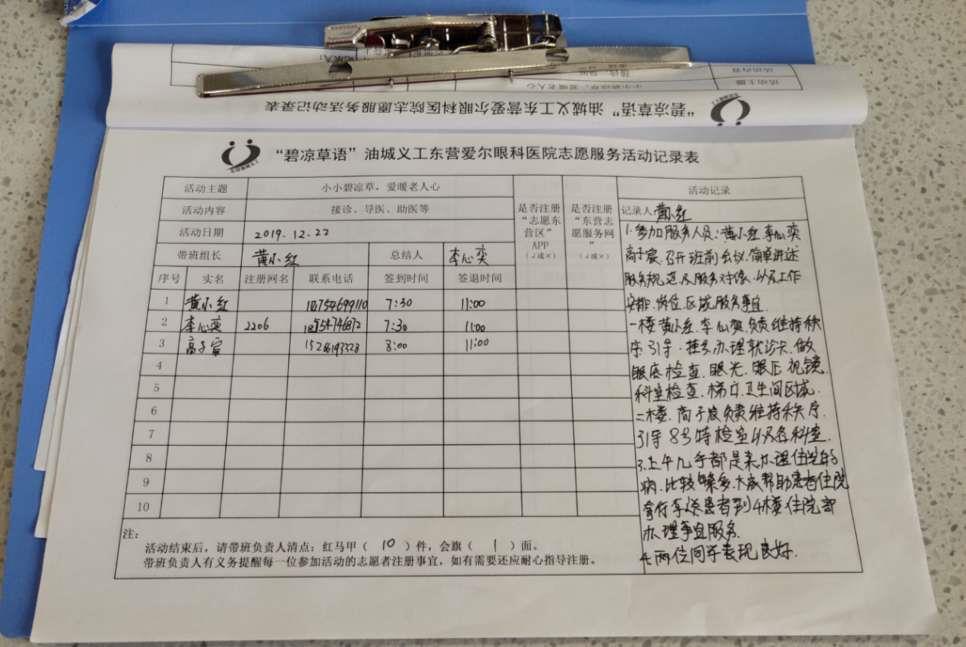 “碧凉草语”油城义工东营爱尔眼科医院志愿服务活动记录表
活动主题 小小碧凉草，爱暖老人心
活动内容 接诊、导医、助医等
活动日期 2019.12.22
带班组长 黄小红 总结人 李心奕
序号 实名 注册网名 联系电话 签到时间 签退时间
是否注册“志愿东营区”APP（√或×）
是否注册“东营志愿服务网”（√或×）
1 黄小红 7:30 11:00
2 李心奕 2206 7:30 11:00
3 高子宸 8:00 11:00
4
5
6
7
8
9
10
注：
活动结束后，请带班负责人清点：红马甲（10）件，会旗（1）面。
带班负责人有义务提醒每一位参加活动的志愿者注册事宜，如有需要还应耐心指导注册。
活动记录
记录人 黄小红
1.参加服务人员：黄小红 李心奕
高子宸．召开班前会议．简单讲述
服务规范及服务对像．以及工作
安排．岗位．区域．服务事宜
一楼黄小红．李心奕负责维持秩
序．引导．挂号．办理就诊卡．做
眼底检查．眼光．眼压．视镜．
科室检查．梯口．卫生间区域．
二楼．高子宸负责维持秩序．
引导8号特检室以及各科室．
3.上午几乎都是来办理住院的
病．比较多．帮助患者住院
拿行李送患者到4楼住院部
办理事宜服务．
4.两位同学表现良好．